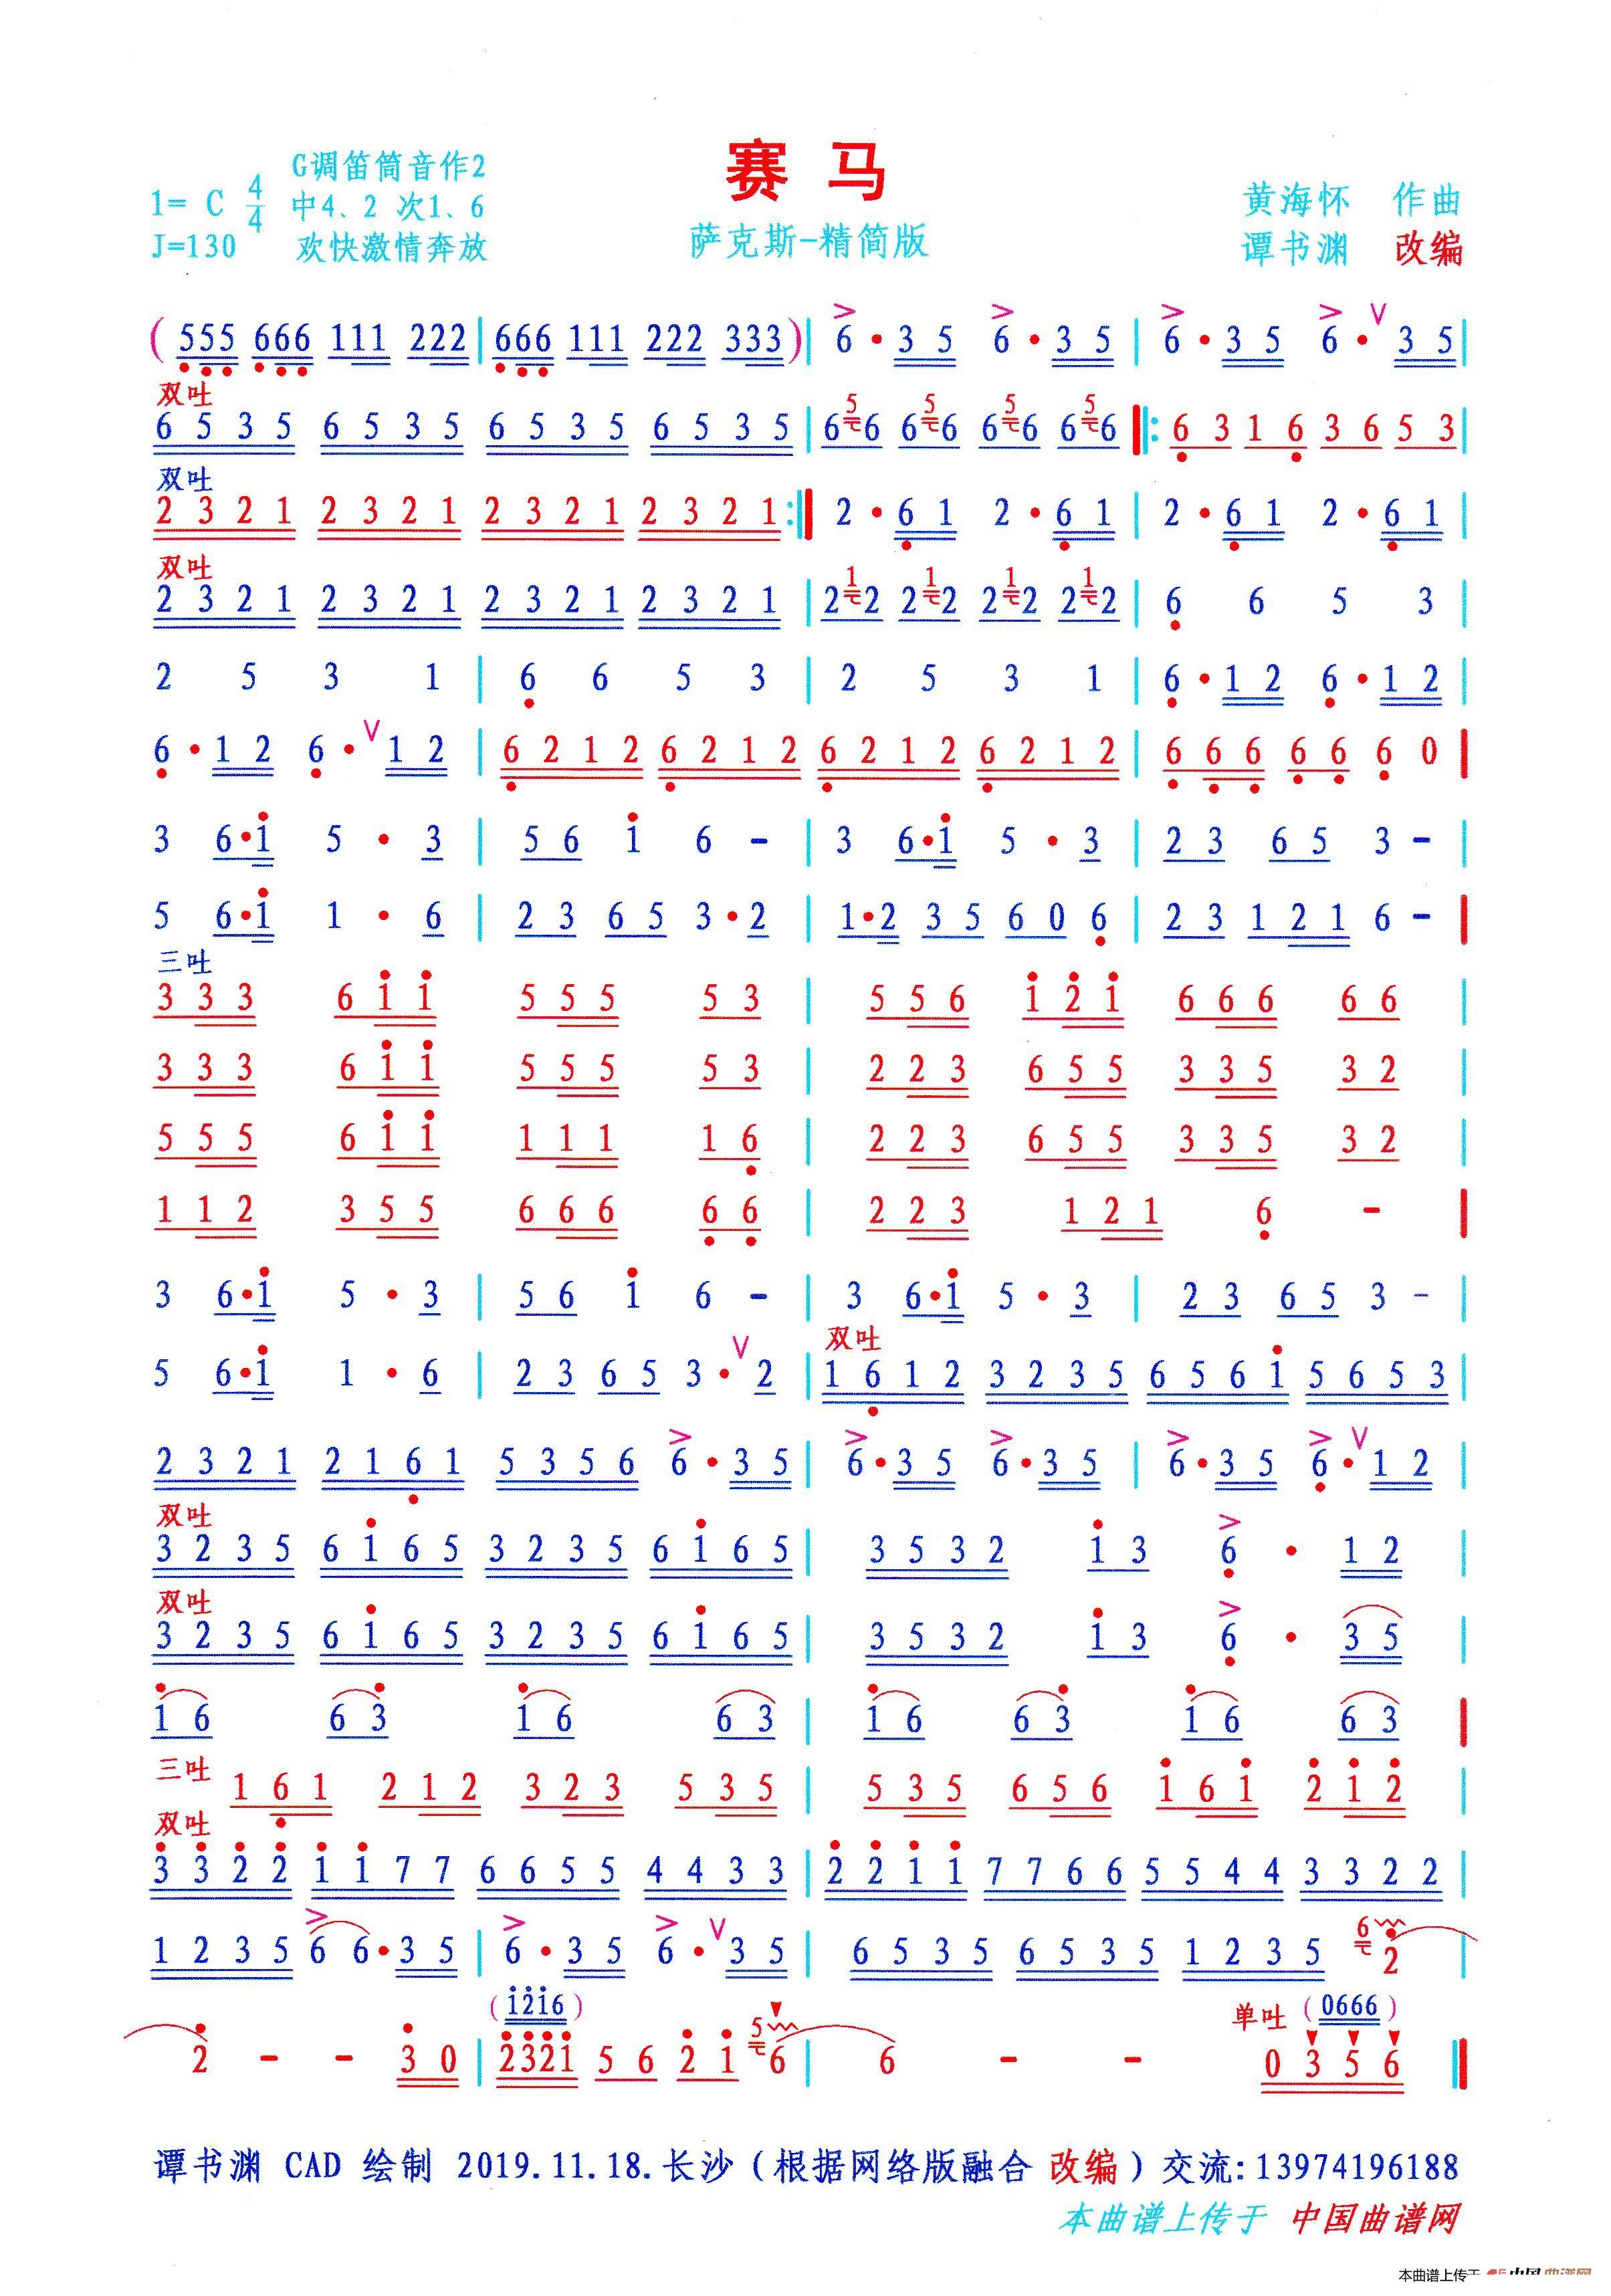 赛 马
G调笛筒音作2
1= C 4/4 中4、2 次1、6
J=130 欢快激情奔放
萨克斯-精简版
黄海怀 作曲
谭书渊 改编
( 555 666 111 222 | 666 111 222 333 ) | 6 • 3 5 6 • 3 5 | 6 • 3 5 6 • 3 5 |
双吐
6 5 3 5 6 5 3 5 6 5 3 5 6 5 3 5 | 6 5 6 6 5 6 6 5 6 6 5 6 |: 6 3 1 6 3 6 5 3 |
双吐
2 3 2 1 2 3 2 1 2 3 2 1 2 3 2 1 :| 2 • 6 1 2 • 6 1 | 2 • 6 1 2 • 6 1 |
双吐
2 3 2 1 2 3 2 1 2 3 2 1 2 3 2 1 | 2 1 2 2 1 2 2 1 2 2 1 2 | 6 6 5 3 |
2 5 3 1 | 6 6 5 3 | 2 5 3 1 | 6 • 1 2 6 • 1 2 |
6 • 1 2 6 • 1 2 | 6 2 1 2 6 2 1 2 6 2 1 2 6 2 1 2 | 6 6 6 6 6 6 0 |
3 6 • i 5 • 3 | 5 6 i 6 - | 3 6 • i 5 • 3 | 2 3 6 5 3 - |
5 6 • i 1 • 6 | 2 3 6 5 3 • 2 | 1 • 2 3 5 6 0 6 | 2 3 1 2 1 6 - |
三吐
3 3 3 6 i i 5 5 5 5 3 | 5 5 6 i 2 i 6 6 6 6 6 |
3 3 3 6 i i 5 5 5 5 3 | 2 2 3 6 5 5 3 3 5 3 2 |
5 5 5 6 i i 1 1 1 1 6 | 2 2 3 6 5 5 3 3 5 3 2 |
1 1 2 3 5 5 6 6 6 6 6 | 2 2 3 1 2 1 6 - |
3 6 • i 5 • 3 | 5 6 i 6 - | 3 6 • i 5 • 3 | 2 3 6 5 3 - |
双吐
5 6 • i 1 • 6 | 2 3 6 5 3 • 2 | 1 6 1 2 3 2 3 5 6 5 6 i 5 6 5 3 |
2 3 2 1 2 1 6 1 5 3 5 6 6 • 3 5 | 6 • 3 5 6 • 3 5 | 6 • 3 5 6 • 1 2
双吐
3 2 3 5 6 i 6 5 3 2 3 5 6 i 6 5 | 3 5 3 2 i 3 6 • 1 2 |
双吐
3 2 3 5 6 i 6 5 3 2 3 5 6 i 6 5 | 3 5 3 2 i 3 6 • 3 5 |
i 6 6 3 i 6 6 3 | i 6 6 3 i 6 6 3 |
三吐
1 6 1 2 1 2 3 2 3 5 3 5 | 5 3 5 6 5 6 i 6 i 2 i 2 |
双吐
3 3 2 2 i i 7 7 6 6 5 5 4 4 3 3 | 2 2 i i 7 7 6 6 5 5 4 4 3 3 2 2 |
1 2 3 5 6 6 • 3 5 | 6 • 3 5 6 • 3 5 | 6 5 3 5 6 5 3 5 1 2 3 5 6 2 |
( i2i6 ) 单吐 ( 0666 )
2 - - 3 0 | 232i 5 6 2 i 5 6 | 6 - - 0 3 5 6 ||
谭书渊 CAD 绘制 2019.11.18.长沙（根据网络版融合 改编）交流:13974196188
本曲谱上传于 中国曲谱网
本曲谱上传于